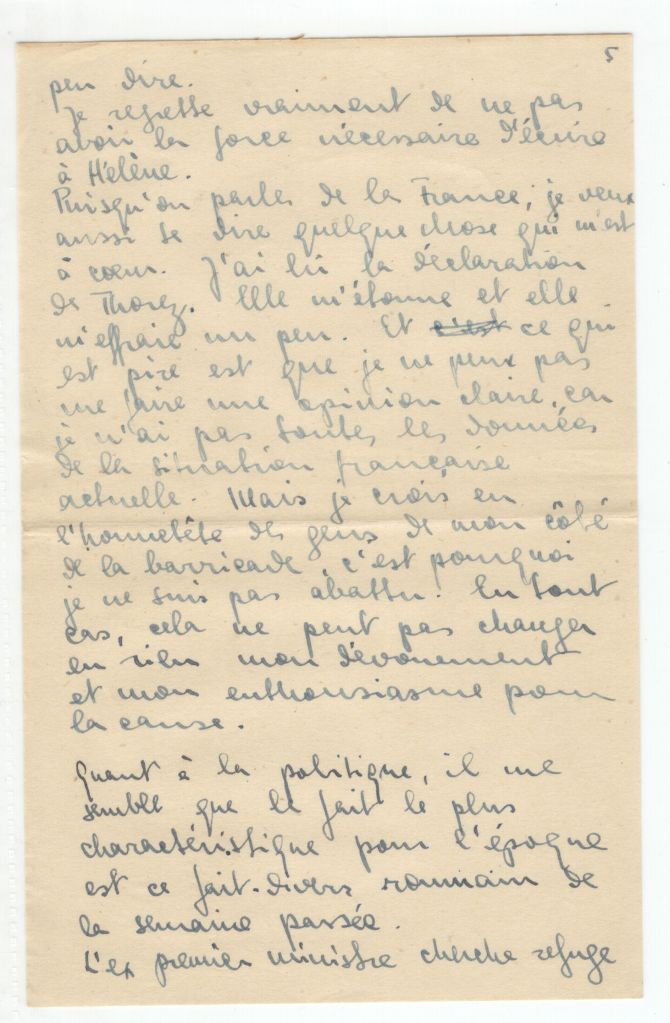 5
peu dire.
Je regrette vraiment de ne pas
avoir la force nécessaire d'écrire
à Hélène.
Puisqu'on parle de la France, je veux
aussi te dire quelque chose qui m'est
à cœur. J'ai lu la déclaration
de Thorez. Elle m'étonne et elle
m'effraie un peu. Et c'est ce qui
est pire est que je ne peux pas
me faire une opinion claire, car
je n'ai pas toutes les données
de la situation française
actuelle. Mais je crois en
l'honnetête des gens de mon côté
de la barricade c'est pourquoi
je ne suis pas abattu. En tout
cas, cela ne peut pas changer
en rien mon dévouement
et mon enthousiasme pour
la cause.
Quant à la politique, il me
semble que le fait le plus
charactéristique pour l'époque
est ce fait-divers roumain de
la semaine passée.
L'ex premier ministre cherche refuge